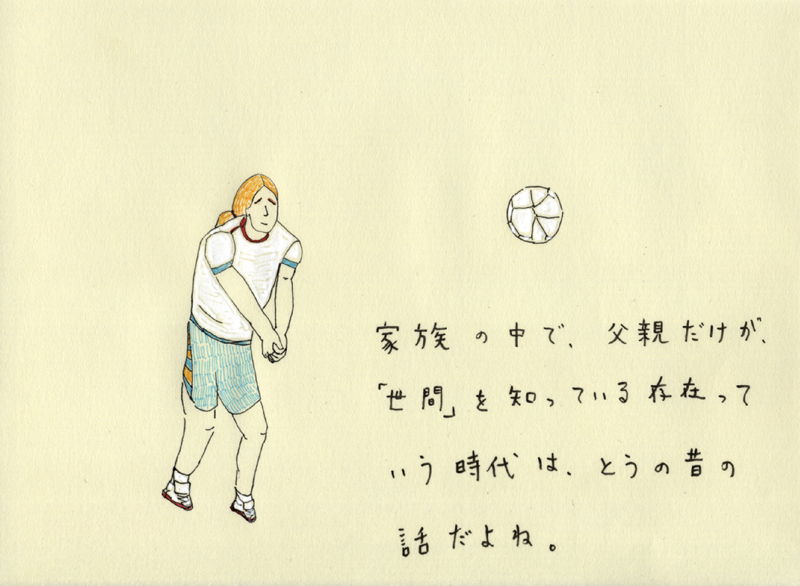 家族の中で、父親だけが、
「世間」を知っている存在って
いう時代は、とうの昔の
話だよね。